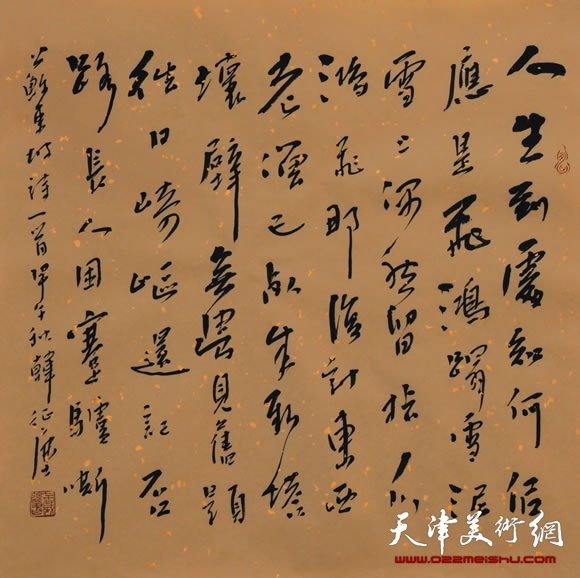 人生到處知何似
應是飛鴻蹋雪泥
雪上偶然留指爪
鴻飛那復計東西
老僧已死成新塔
壞壁無由見舊題
往日崎嶇還記否
路長人困蹇驢嘶
蘇東坡詩一首甲午秋韓征塵
天津美術網
www.022meishu.com